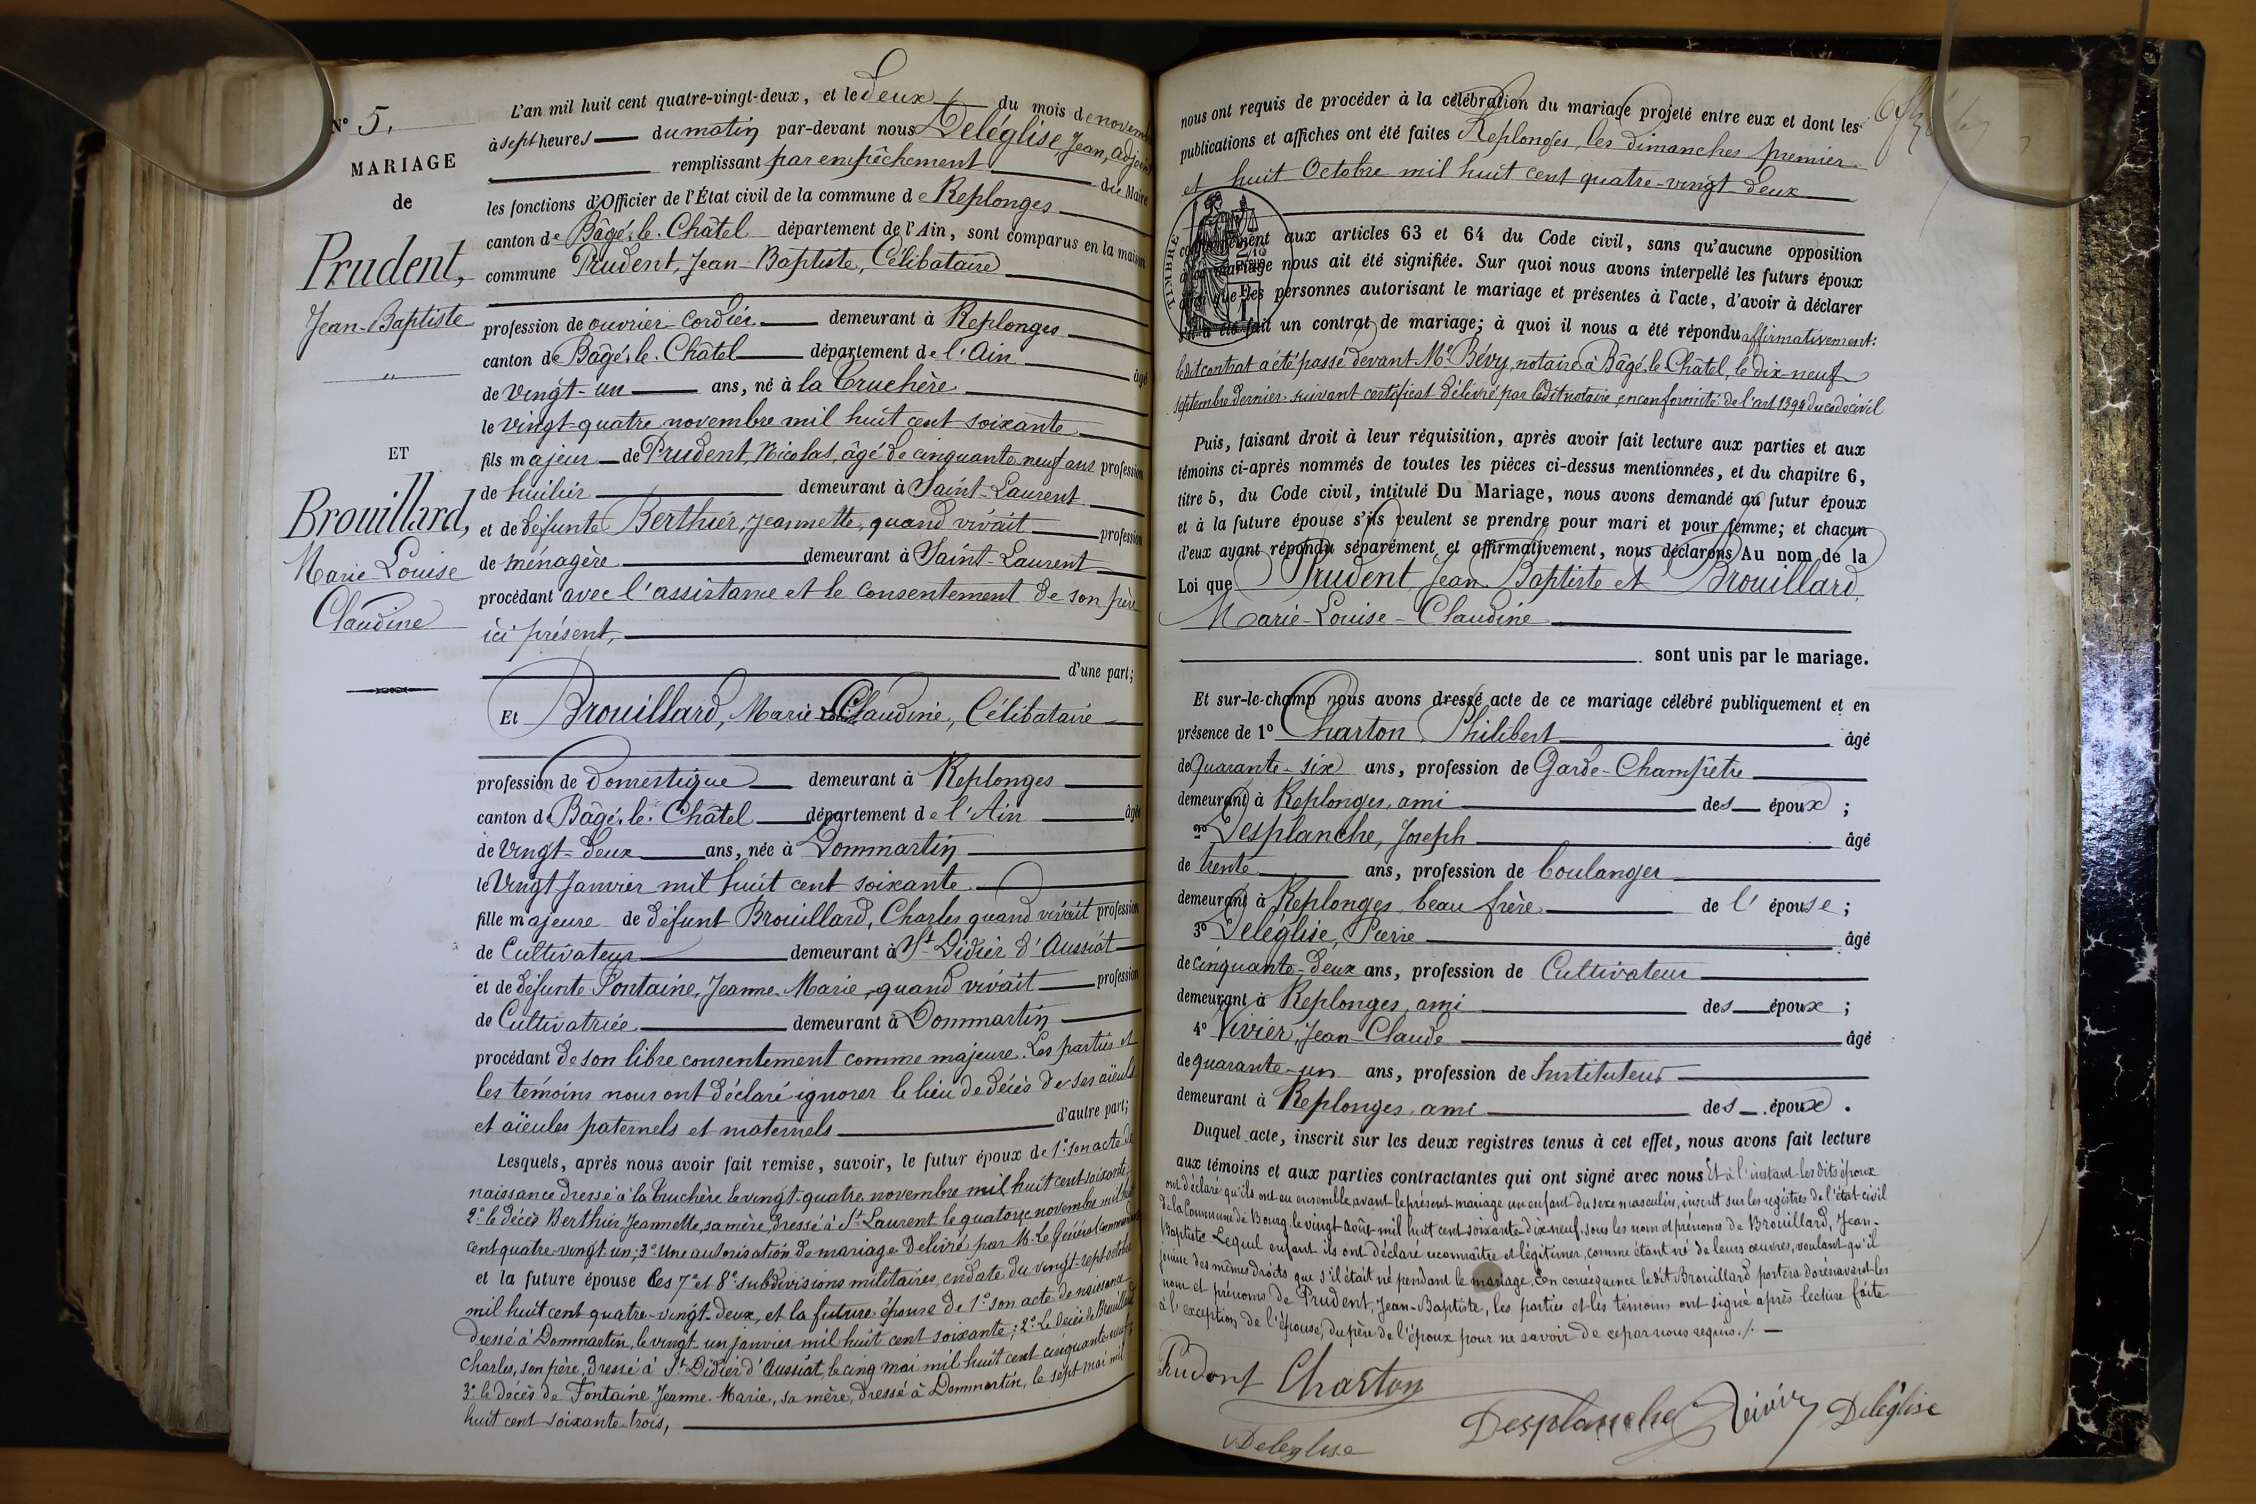 N° 5.
MARIAGE
de
Prudent,
Jean-Baptiste
"
ET
Brouillard,
Marie-Louise
Claudine
L'an mil huit cent quatre-vingt-deux, et le deux du mois de novem
à sept heures du matin par-devant nous Deléglise, Jean, adjoint
remplissant par empêchement du Maire
les fonctions d'Officier de l'État civil de la commune de Replonges
canton de Bâgé-le-Châtel département de l'Ain, sont comparus en la maison
commune Prudent, Jean-Baptiste, Célibataire
profession de ouvrier cordier demeurant à Replonges
canton de Bâgé-le-Châtel département de l'Ain âgé
de vingt-un ans, né à la Truchère
le vingt-quatre novembre mil huit cent soixante
fils majeur de Prudent, Nicolas, âgé de cinquante-neuf ans profession
de huilier demeurant à Saint-Laurent
et de défunte Berthier, Jeannette, quand vivait profession
de ménagère demeurant à Saint-Laurent
procédant avec l'assistance et le consentement de son père
ici présent,
d'une part;
Et Brouillard, Marie Claudine, Célibataire
profession de Domestique demeurant à Replonges
canton de Bâgé-le-Châtel département de l'Ain âgée
de vingt-deux ans, née à Dommartin
le vingt Janvier mil huit cent soixante
fille majeure de défunt Brouillard, Charles quand vivait profession
de Cultivateur demeurant à St-Didier d'Aussiat
et de défunte Fontaine, Jeanne-Marie, quand vivait profession
de Cultivatrice demeurant à Dommartin
procédant de son libre consentement comme majeure. Les parties et
les témoins nous ont déclaré ignorer le lieu de décès de ses aïeuls
et aïeules paternels et maternels d'autre part;
Lesquels, après nous avoir fait remise, savoir, le futur époux de 1° son acte de
naissance dressé à la Truchère le vingt-quatre novembre mil huit cent soixante
2° le décès Berthier, Jeannette, sa mère, dressé à St-Laurent le quatorze novembre mil huit
cent quatre-vingt-un; 3° Une autorisation de mariage délivré par M. Le Général Commandant
et la future épouse les 7e et 8e subdivisions militaires, en date du vingt-sept octobre
mil huit cent quatre-vingt-deux, et la future épouse de 1° son acte de naissance
dressé à Dommartin, le vingt-un janvier mil huit cent soixante; 2° Le décès de Brouillard
Charles, son père, dressé à St-Didier d'Aussiat, le cinq mai mil huit cent cinquante-neuf;
3° le décès de Fontaine Jeanne-Marie, sa mère, dressé à Dommartin, le sept mai mil
huit cent soixante-trois,
nous ont requis de procéder à la célébration du mariage projeté entre eux et dont les
publications et affiches ont été faites Replonges, les dimanches premier
et huit Octobre mil huit cent quatre-vingt deux
TIMBRE
conformément aux articles 63 et 64 du Code civil, sans qu'aucune opposition
à ce mariage nous ait été signifiée. Sur quoi nous avons interpellé les futurs époux
ainsi que les personnes autorisant le mariage et présentes à l'acte, d'avoir à déclarer
s'il a été fait un contrat de mariage; à quoi il nous a été répondu affirmativement:
ledit contrat a été passé devant Me Bévy, notaire à Bâgé-le-Châtel, le dix-neuf
septembre dernier suivant certificat délivré par ledit notaire, en conformité de l'art 1394 du code civil
Puis, faisant droit à leur réquisition, après avoir fait lecture aux parties et aux
témoins ci-après nommés de toutes les pièces ci-dessus mentionnées, et du chapitre 6,
titre 5, du Code civil, intitulé Du Mariage, nous avons demandé au futur époux
et à la future épouse s'ils veulent se prendre pour mari et pour femme; et chacun
d'eux ayant répondu séparément et affirmativement, nous déclarons Au nom de la
Loi que Prudent, Jean-Baptiste et Brouillard,
Marie-Louise-Claudine
sont unis par le mariage.
Et sur-le-champ nous avons dressé acte de ce mariage célébré publiquement et en
présence de 1° Charton Philibert âgé
de Quarante-six ans, profession de Garde-Champêtre
demeurant à Replonges, ami des époux;
2° Desplanche, Joseph âgé
de trente ans, profession de boulanger
demeurant à Replonges, beau frère de l'épouse;
3° Deléglise, Pierre âgé
de cinquante-deux ans, profession de Cultivateur
demeurant à Replonges, ami des époux;
4° Vivier, Jean-Claude âgé
de quarante-un ans, profession de Instituteur
demeurant à Replonges, ami des époux.
Duquel acte, inscrit sur les deux registres tenus à cet effet, nous avons fait lecture
aux témoins et aux parties contractantes qui ont signé avec nous Et à l'instant les dits époux
ont déclaré qu'ils ont eu ensemble, avant le présent mariage un enfant du sexe masculin, inscrit sur les registres de l'état civil
de la Commune de Bourg, le vingt août mil huit cent soixante-dix-neuf, sous les nom et prénoms de Brouillard, Jean-
Baptiste. Lequel enfant ils ont déclaré reconnaître et légitimer, comme étant né de leurs œuvres, voulant qu'il
jouisse des mêmes droits que s'il était né pendant le mariage. En conséquence ledit Brouillard portera dorénavant les
nom et prénoms de Prudent, Jean-Baptiste, les parties et les témoins ont signé après lecture faite
à l'exception de l'épouse, du père de l'époux pour ne savoir de ce par nous requis./.
Prudont Charton
Desplanche Vivier Deléglise
Deleglise